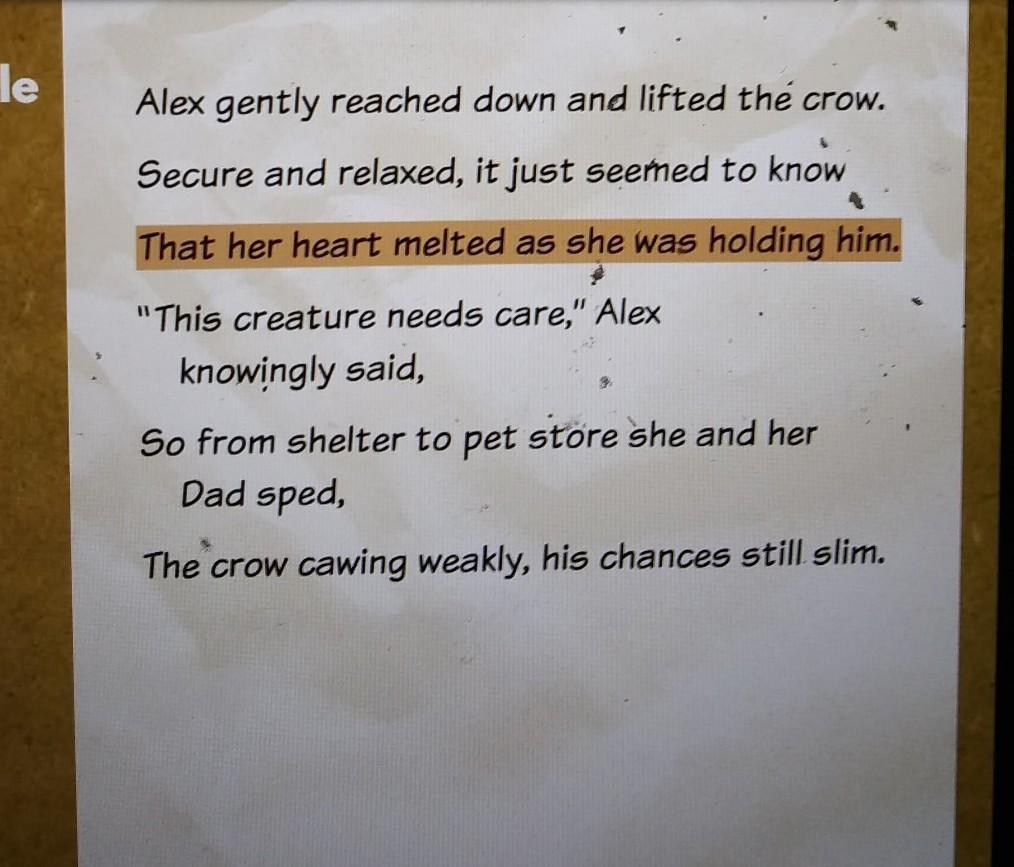 le
Alex gently reached down and lifted the crow.
Secure and relaxed, it just seemed to know
That her heart melted as she was holding him.
"This creature needs care," Alex
knowingly said,
So from shelter to pet store she and her
Dad sped,
The crow cawing weakly, his chances still slim.